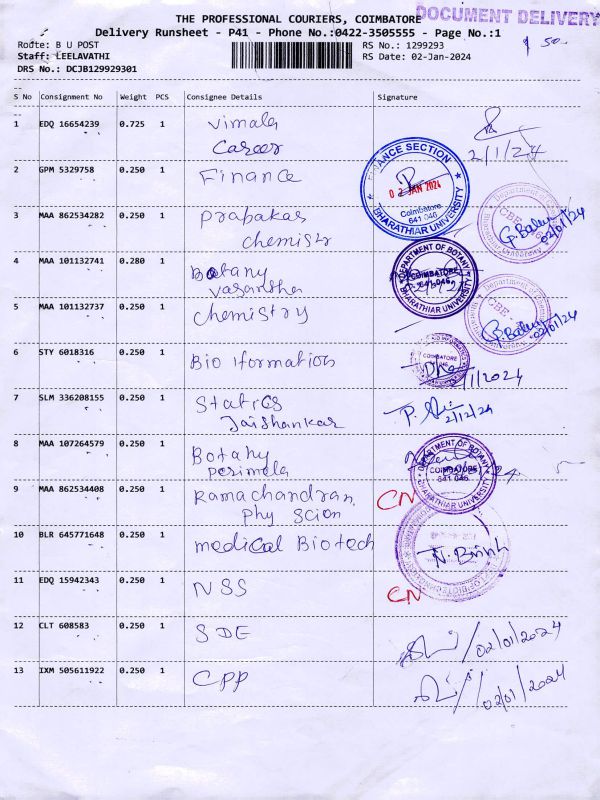 THE PROFESSIONAL COURIERS, COIMBATORE
DOCUMENT DELIVERY
Delivery Runsheet - P41 - Phone No.:0422-3505555 - Page No.:1
50
Route: B U POST
RS No.: 1299293
Staff: LEELAVATHI
RS Date: 02-Jan-2024
DRS No.: DCJB129929301
S No Consignment No Weight PCS Consignee Details Signature
1 EDQ 16654239 0.725 1 Vimala
Career
2/1/24
2 GPM 5329758 0.250 1 Finance
FINANCE SECTION
02 JAN 2024
Coimbatore
641 046
BHARATHIAR UNIVERSITY
3 MAA 862534282 0.250 1 Prabakar
chemistr
CBE
G. Baby
02/01/24
4 MAA 101132741 0.280 1 Botany
vasantha
DEPARTMENT OF BOTANY
COIMBATORE
641 046
BHARATHIAR UNIVERSITY
5 MAA 101132737 0.250 1 chemistry
CBE
G. Baby
02/01/24
6 STY 6018316 0.250 1 Bio Iformation
COIMBATORE
/1/2024
7 SLM 336208155 0.250 1 Statics
Jaishankar
2/12/24
8 MAA 107264579 0.250 1 Botany
perimala
DEPARTMENT OF BOTANY
COIMBATORE
641 046
BHARATHIAR UNIVERSITY
9 MAA 862534408 0.250 1 Ramachandran
Phy Scion
CN
10 BLR 645771648 0.250 1 medical Biotech
11 EDQ 15942343 0.250 1 NSS
CN
12 CLT 608583 0.250 1 SDE
02/01/2024
13 IXM 505611922 0.250 1 CPP
02/01/2024